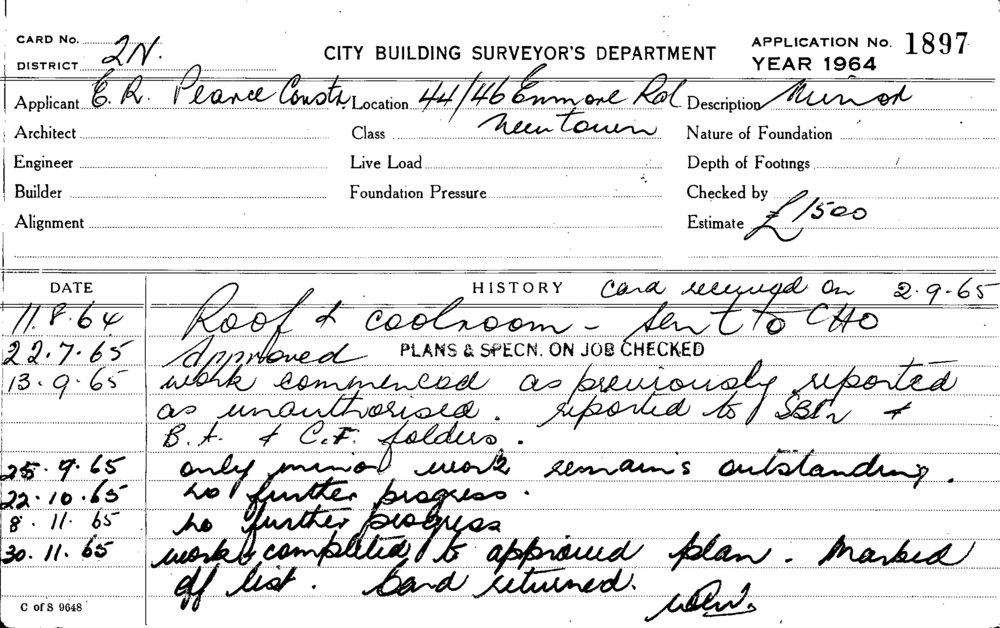 CARD No.
DISTRICT 2N.
CITY BUILDING SURVEYOR'S DEPARTMENT
APPLICATION No. 1897
YEAR 1964
Applicant E. R. Pearce Constr Location 44/46 Enmore Rd Description Minor
Architect Class Newtown Nature of Foundation
Engineer Live Load Depth of Footings
Builder Foundation Pressure Checked by
Alignment Estimate £1500
DATE HISTORY Card received on 2.9.65
11.8.64 Roof & coolroom - sent to CHO
22.7.65 Approved PLANS & SPECN. ON JOB CHECKED
13.9.65 work commenced as previously reported
as unauthorised. reported to &
B.A. & C.F. folders.
25.9.65 only minor work remains outstanding.
22.10.65 no further progress.
8.11.65 no further progress
30.11.65 work completed to approved plan. Marked
off list. Card returned.
C of S 9648